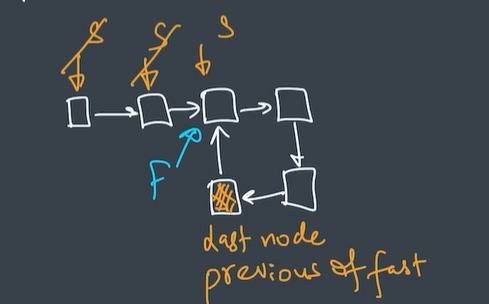 S S S
F
Last node
previous of fast